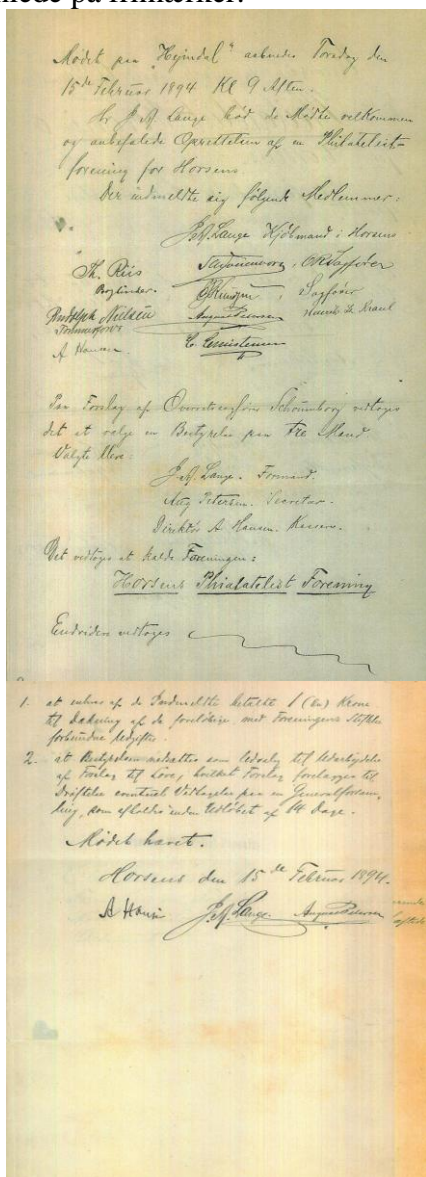 nede på frimærker.
Mødet paa "Hejmdal" aabnedes Torsdag den
15de Februar 1894 Kl 9 Aften.
Hr J. A. Lange bød de Mødte velkommen
og anbefalede Oprettelsen af en Philatelist-
forening for Horsens
Der indmeldte sig følgende Medlemmer:
J. A. Lange Kjøbmand i Horsens
Th. Riis
Bogbinder.
Sagfører
Rudolph Nielsen
August Petersen
A Hansen
C. Christensen
Paa Forslag af Overretssagfører Schønneborg vedtoges
det at vælge en Bestyrelse paa tre Mand
Valgte blev:
J. A. Lange. Formand.
Aug Petersen. Secretær.
Direktør A Hansen. Kasserer.
Det vedtoges at kalde Foreningen:
Horsens Phialatelist Forening
Endvidere vedtoges
1. at enhver af de Indmeldte betalte 1 (en) Krone
til Dækning af de foreløbige, med Foreningens Stiftelse
forbundne Udgifter.
2. at Bestyrelsen nedsættes som Udvalg til Udarbejdelse
af Forslag til Love, hvilket Forslag forelægges til
Drøftelse eventuel Vedtagelse paa en Generalforsam-
ling, som afholdes inden Udløbet af 14 Dage.
Mødet hævet.
Horsens den 15de Februar 1894.
A Hansen J. A. Lange. August Petersen